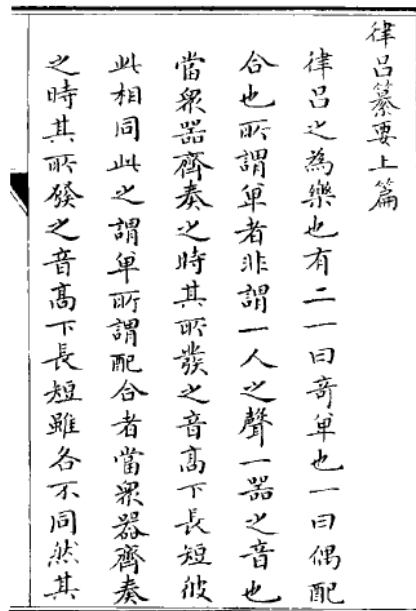 律呂纂要上篇
律呂之為樂也有二一曰竒單也一曰偶配
合也所謂單者非謂一人之聲一器之音也
當衆器齊奏之時其所發之音髙下長短彼
此相同此之謂單所謂配合者當衆器齊奏
之時其所發之音髙下長短雖各不同然其